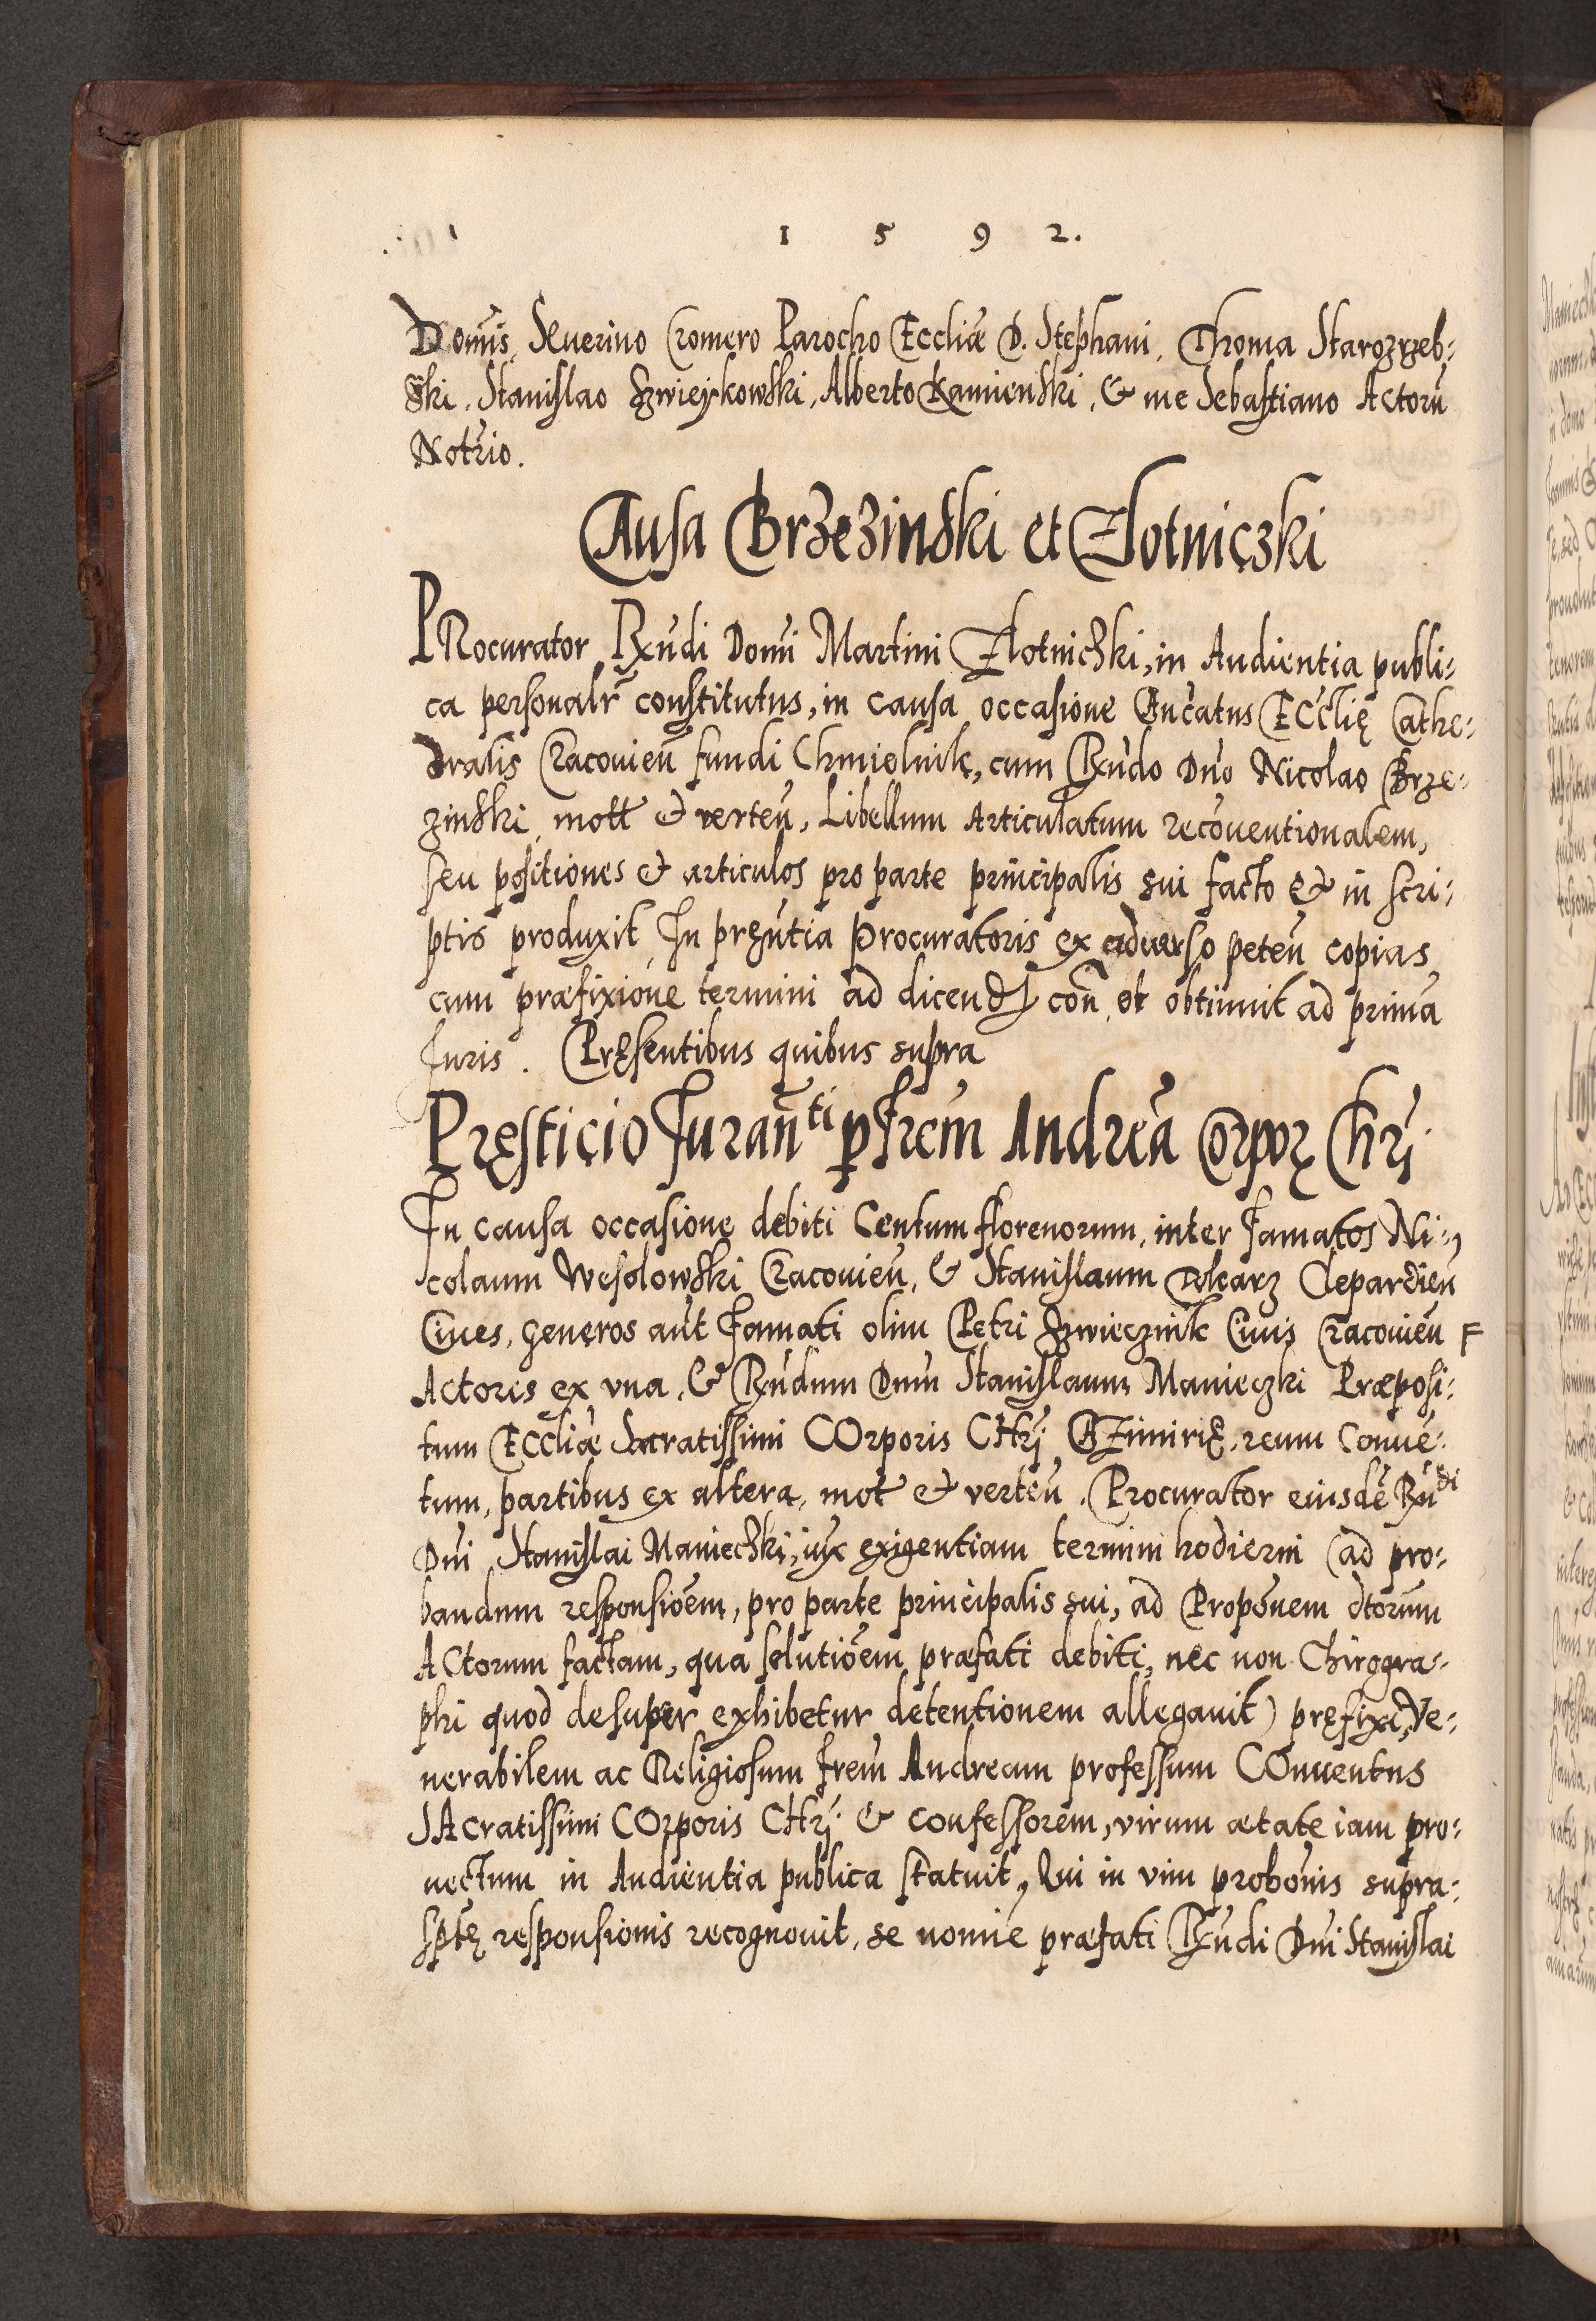 1 5 9 2.
Domīs, Seuerino Cromero Parocho Eccliæ D. Stephani, Thoma Starozrzeb:
ski, Stanislao Szwieykowski, Alberto Kamienski, & me Sebastiano Actorū
Notrio.
Causa Brzezinski et Zlotniczki
PRocurator Rxūdi Domi Martini Zlotnichki, in Audientia publi:
ca personalr constitutus, in causa occasione Cāncatus ECclię Cathe:
dralis Cracouieñ fundi Chmielnik, cum Rxūdo Dño Nicolao Brze:
zinski, mott & verteñ, Libellum Articulatum recōuentionalem,
seu positiones & articulos pro parte principalis sui facto & in scri:
ptis produxit, In pręñtia Procuratoris ex aduerso peteñ copias
cum præfixione termini ad dicend coñ et obtinuit ad primā
Juris. Pręsentibus quibus supra
Pręsticio Jurañti p frēm Andreā Corpor Chrj.
In causa occasione debiti Centum florenorum, inter Famatos Ni:
colaum Wesolowski Cracouieñ, & Stanislaum Clepardieñ
Ciues, generos aūt Famati olim Petri Szwiecznik Ciuis Cracouieñ
Actores ex vna, & Rxūdum Dnm Stanislaum Manieczki Præposi:
tum ECcliæ Sacratissimi COrporis CHrj CAzimirię, reum Conuē:
tum, partibus ex altera, mot & verteñ. Procurator eiusdē Rxūdi
Dni Stanislai Maniechki, iux exigentiam termini hodierni (ad pro:
bandum responsiōem, pro parte principalis sui, ad Propōnem dtorum
ACtorum factam, qua solutiōem præfati debiti, nec non Chirogra:
phi quod desuper exhibetur detentionem allegauit) pręfixi, Ve:
nerabilem ac Religiosum frēm Andream professum COnuentus
SAcratissimi COrporis CHrj & confessorem, virum ætate iam pro:
uectum in Audientia publica statuit, Qui in vim probōnis supra:
sptę responsionis recognouit, se nomiē præfati Rxūdi Dni Stanislai